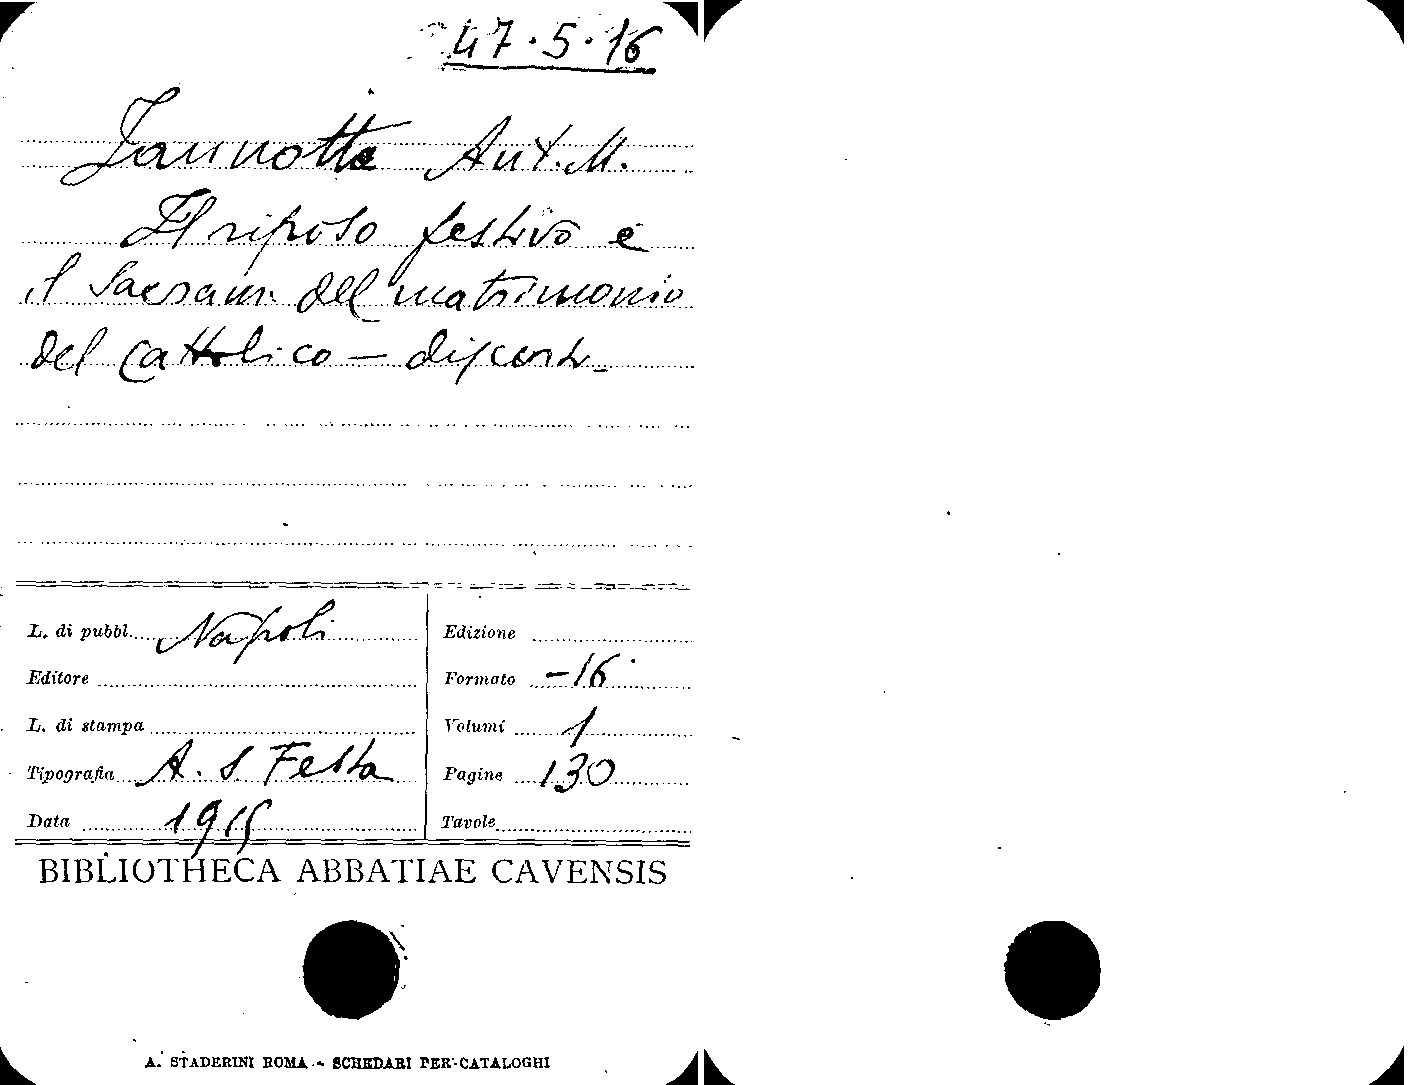 47.5.16
Iannotta Ant. M.
Il riposo festivo e
il Sacram. del matrimonio
del cattolico –
L. di pubbl. Napoli
Editore
L. di stampa
Tipografia A. S. Festa
Data 1915
Edizione
Formato -16
Volumi 1
Pagine 130
Tavole
BIBLIOTHECA ABBATIAE CAVENSIS
A. STADERINI ROMA - SCHEDARI PER CATALOGHI